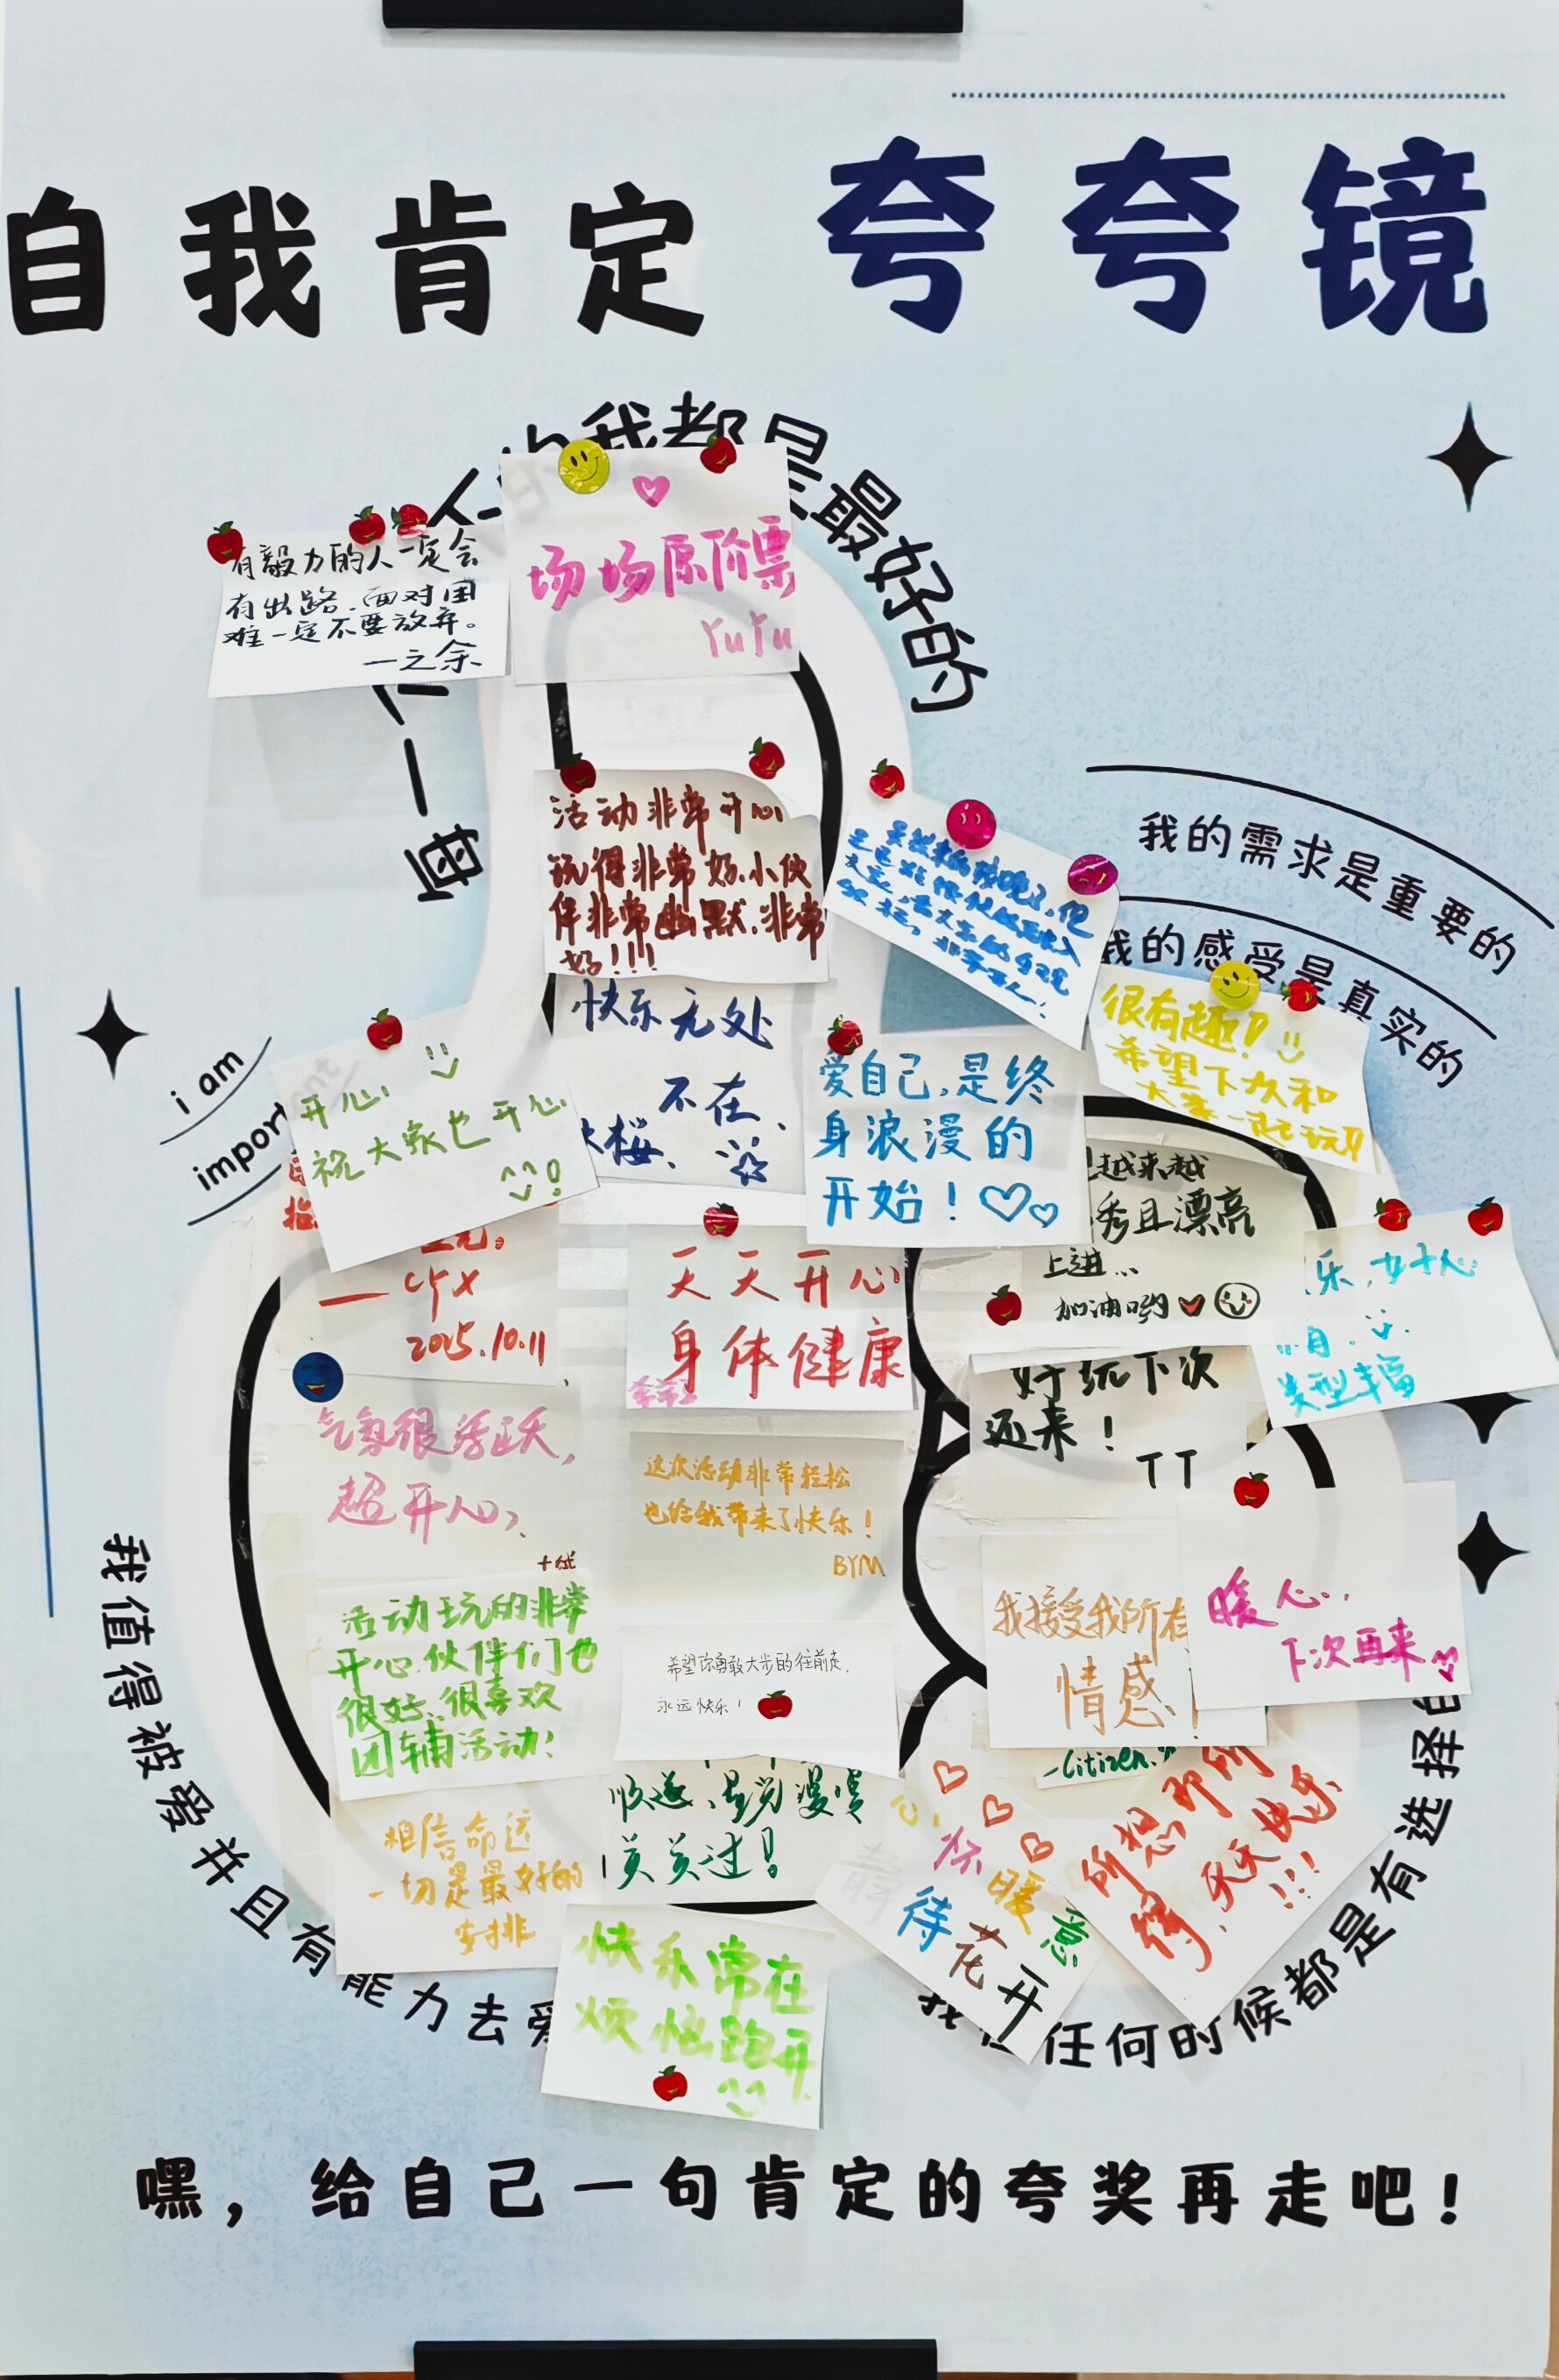 自我肯定 夸夸镜
我都是最好的
有毅力的人一定会
有出路.面对困
难一定不要放弃。
一之余
场场原价票
YuYu
我的需求是重要的
我的感受是真实的
活动非常开心
玩得非常好.小伙
伴非常幽默.非常
好!!!
很有趣!
希望下次和
大家一起玩!!
快乐无处
不在.
i am
impor
开心
祝大家也开心
爱自己,是终
身浪漫的
开始!
越来越
秀且漂亮
上进...
加油哟
乐,
类型丰富
2025.10.11
天天开心
身体健康
好玩下次
还来!
TT
气氛很活跃,
超开心
这次活动非常轻松
也给我带来了快乐!
BYM
活动玩的非常
开心.伙伴们也
很好.很喜欢
团辅活动!
希望你勇敢大步的往前走.
永远快乐!
我接受我所有
情感!
暖心..
下次再来
-Citizen.
顺遂、
关关过!
相信命运
一切是最好的
安排
心怀暖意
静待花开
所想即所
得,天天快乐
!!!
快乐常在
烦恼跑开
我值得被爱并且有能力去爱
任何时候都是有选择
嘿，给自己一句肯定的夸奖再走吧！